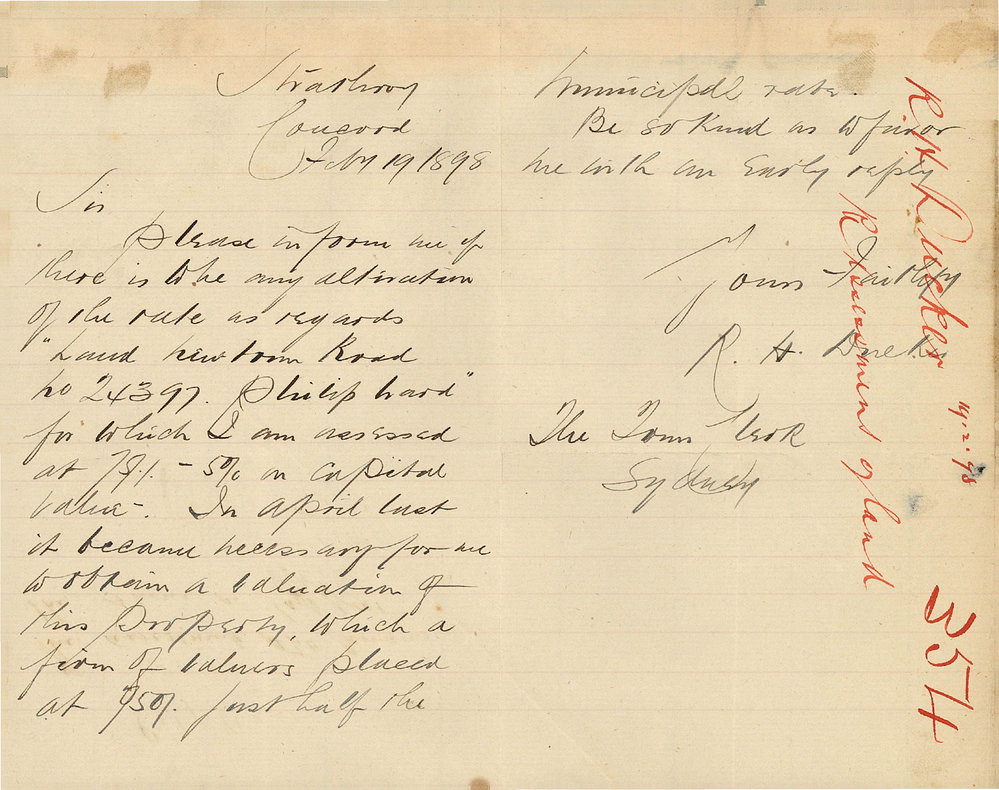 Strathroy
Concord
Feby 19 1898
Sir
Please inform me if
there is to be any alteration
of the rate as regards
"Land Newtown Road
No 24397. Philip Ward"
for which I am assessed
at 75/. - 5% on capital
value -. In April last
it became necessary for me
to obtain a valuation of
this Property, which a
firm of valuers placed
at 750/. just half the
Municipal rate.
Be so kind as to favor
me with an Early reply
Yours Faithfy
R. H. Ducker
The Town Clerk
Sydney
R. H. Ducker 19.2.98
R Assessment of land
354